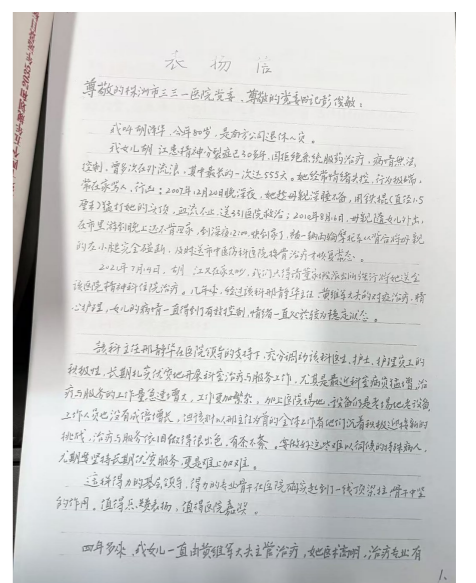 表扬信
尊敬的株洲市三三一医院党委、尊敬的党委书记彭俊敏：
我叫胡泽华，今年80岁，是南方公司退休人员。
我女儿胡江患精神分裂症已30多年，因拒绝系统服药治疗，病情无法
控制，曾多次在外流浪，其中最长的一次达555天。她经常情绪失控，行为极端，
常在家害人、行凶：2007年12月20日晚深夜，她趁母亲深睡不备，用铁棍(直径1.5
厘米)猛打她的头顶，血流不止，送331医院救治；2010年8月6日，母亲随女儿外出，
在市里游到晚上还不肯回家，
的左小腿完全碾断，及时送市中医伤科医院接骨治疗才恢复常态。
2021年7月14日，胡江又在家又吵，我们只得清 派出所强行将她送至
该医院精神科住院治疗。几年来，经过该科邢静华主任、黄维军大夫的对症治疗、精
心护理，女儿的病情一直得到有效控制，情绪一直处于较为稳定状态。
该科主任邢静华在医院领导的支持下，充分调动该科医生、护士、护理员工的
积极性，长期扎实优质地开展科室治疗与服务工作，尤其是最近科室病员猛增，治
疗与服务的工作量急速增大，工作更加繁杂，加上医院场地、设备仍是老场地老设备，
工作人员也没有成倍增长，但该科以邢主任为首的全体工作者他们沉着积极迎接新的
挑战，治疗与服务依旧做得很出色，有条不紊。要做好这些难以伺候的特殊病人，
尤期要坚持长期优质服务，更是难上加难。
这种得力的基层领导、得力的专业骨干在医院确实起到了一线顶梁柱、骨干中坚
的作用。值得点赞表扬，值得医院嘉奖。
四年多来，我女儿一直由黄维军大夫主管治疗，她医术高明，治疗专业有
1.